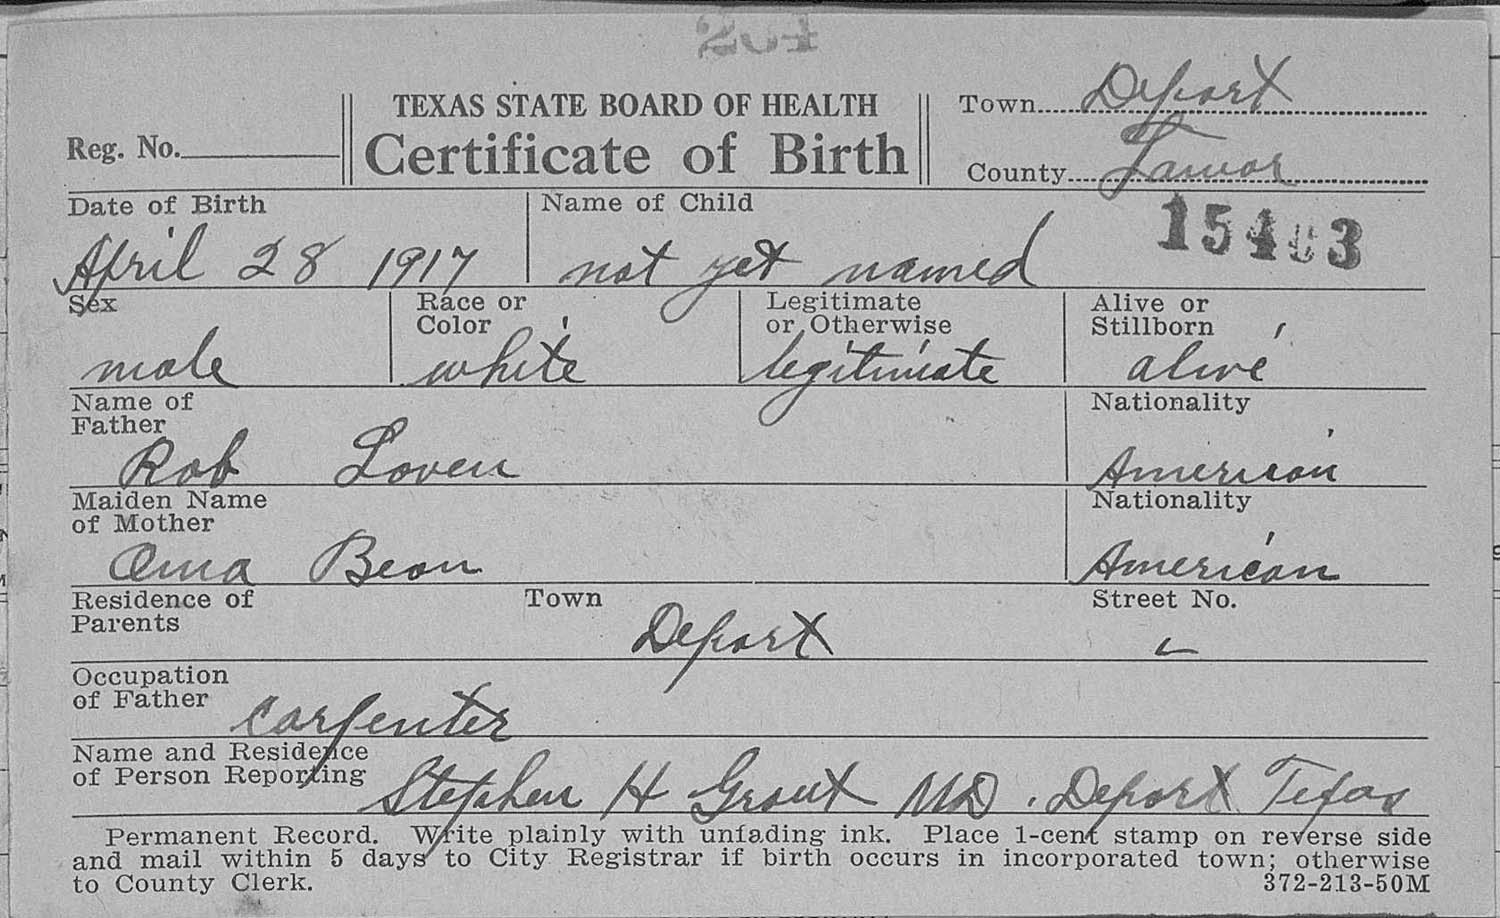 TEXAS STATE BOARD OF HEALTH
Certificate of Birth
Reg. No.
Town Deport
County Lamar
Date of Birth April 28 1917
Name of Child not yet named
Sex male
Race or Color white
Legitimate or Otherwise legitimate
Alive or Stillborn alive
Name of Father Rob Loven
Nationality American
Maiden Name of Mother Oma Bean
Nationality American
Residence of Parents
Town Deport
Street No.
Occupation of Father carpenter
Name and Residence of Person Reporting Stephen H Grant MD. Deport Texas
Permanent Record. Write plainly with unfading ink. Place 1-cent stamp on reverse side
and mail within 5 days to City Registrar if birth occurs in incorporated town; otherwise
to County Clerk.
372-213-50M